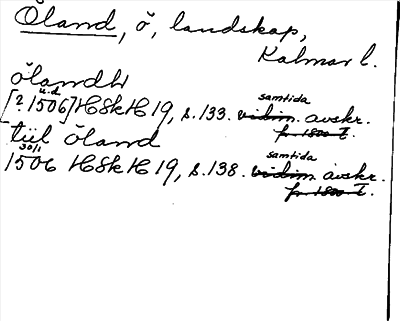 Öland, ö, landskap,
Kalmar l.
ölandh
u.d.
[? 1506] HSkH 19, s. 133. samtida vidim. avskr.
fr. 1800-t.
tiil öland
30/1
1506 HSkH 19, s. 138. samtida vidim avskr.
fr. 1800-t.